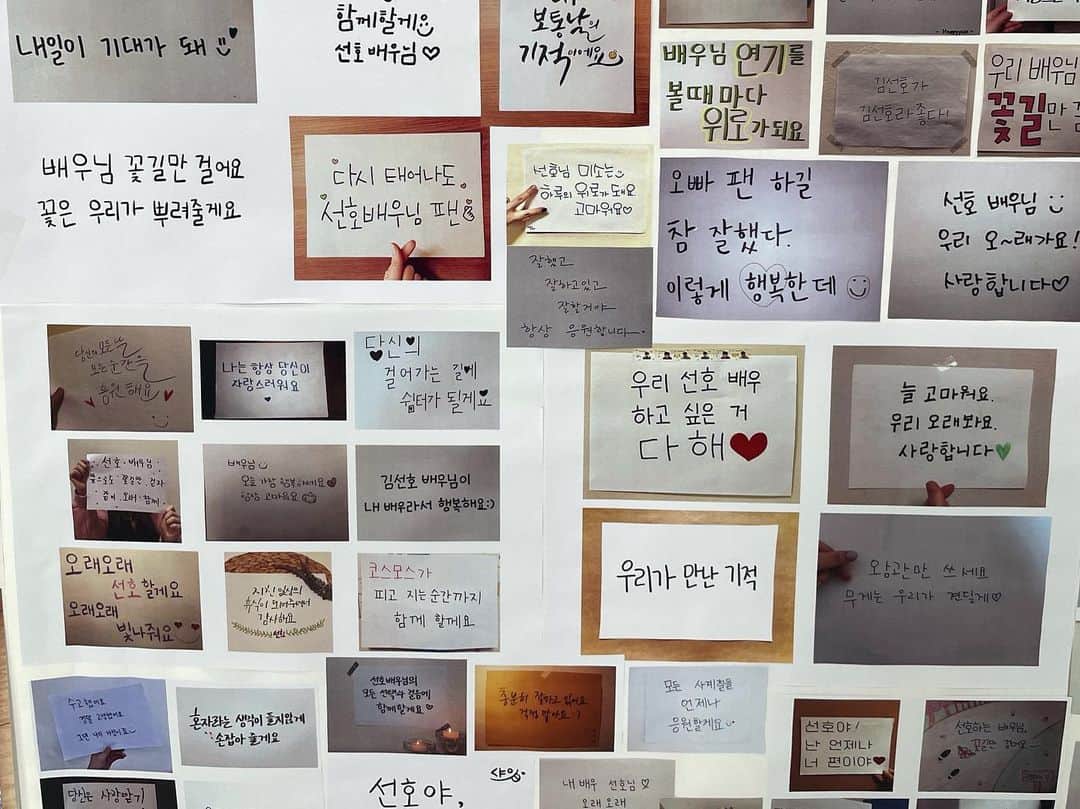 내일이 기대가 돼
함께할게요
선호 배우님♡
보통날의
기적이에요
배우님 연기를
볼때마다
위로가되요
김선호가
김선호라 좋다!
우리 배우님
꽃길만
배우님 꽃길만 걸어요
꽃은 우리가 뿌려줄게요
다시 태어나도
선호배우님 팬
선호님 미소는
하루의 위로가 돼요
고마워요♡
오빠 팬 하길
참 잘했다.
이렇게 행복한 데
선호 배우님
우리 오~래가요!
사랑합니다♡
잘했고
잘하고있고
잘할거야
항상 응원합니다
당신의 모든 날
모든 순간을
응원해요
나는 항상 당신이
자랑스러워요
당신의
걸어가는 길에
쉼터가 될게요
우리 선호 배우
하고 싶은 거
다 해♥
늘 고마워요.
우리 오래봐요.
사랑합니다
선호 배우님
배우님
항상 고마워요
김선호 배우님이
내 배우라서 행복해요:)
오래오래
선호할게요
오래오래
빛나줘요
지친 일상의
휴식이 되어주어서
감사해요
코스모스가
피고 지는순간까지
함께 할게요
우리가 만난 기적
왕관만 쓰세요
무게는 우리가 견딜게♡
수고했어요
혼자라는 생각이 들지않게
손잡아 줄게요
선호배우님의
모든 선택과 걸음에
함께할게요
충분히 잘하고 있어요
걱정 말아요 :)
모든 사계절을
언제나
응원할게요
선호야!
난 언제나
너 편이야♥
선호하는 배우님,
꽃길만 걸어요
당신은 사랑받기
선호야,
내 배우 선호님♡
오래 오래